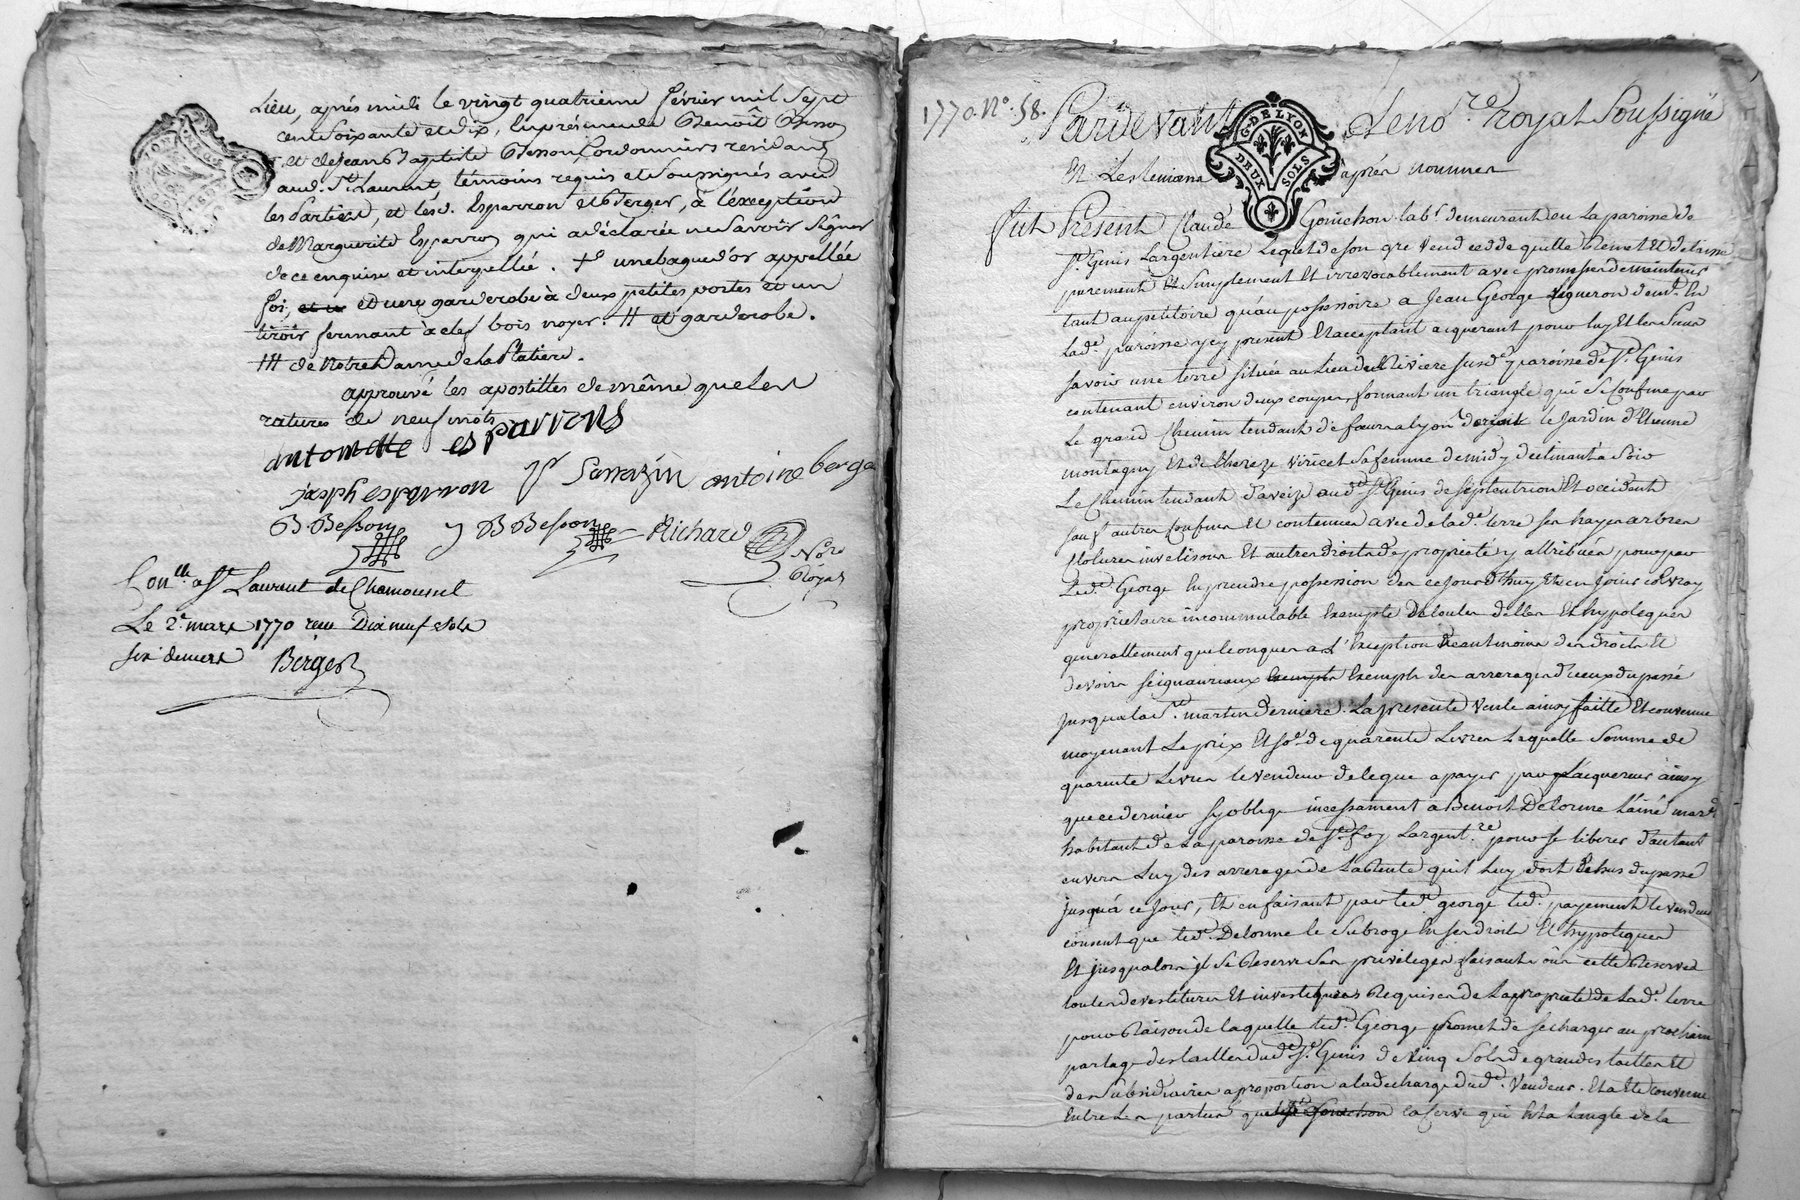 Lieu, après midi le vingt quatrieme février mil sept
cent soixante et dix, En présence de Benoit Besson
et de Jean Baptiste Besson Cordonniers residants
aud. St Laurent, témoins requis et soussignés avec
les Parties, et lesd. Esparron et Berger, à l'exception
de Marguerite Esparron qui a déclarée ne savoir signer
de ce enquise et interpellée. une bague d'or appellée
foi, et une garderobe à deux petites portes et un
tiroir fermant à clef bois noyer. # et garderobe.
de Notre Dame de la Platiere.
approuvé les apostilles de même que les
ratures de neuf mots
antoinette esparrens
Josph esparron Sarrazin antoine berge
B. Besson J B Besson Richard
No.re Royal
Con.lle a St Laurent de Chamousset
Le 2e mars 1770 recu Dix neuf sols
six deniers Berger
LYON
1770. No. 58. Pardevant Le no.re royal soussigné
G. DE LYON
DEUX SOLS
Et Les temoins après nommes
Fut Présent Claude Gonichon lab.r demeurant en la paroisse de
St. Genis Largentiere Lequel de son gre vend cedde quitte Remet Et delaisse
purement Et simplement Et irrevocablement avec promesse de maintenir
tant au petitoire qu'au possessoire a Jean George vigneron demt. En
lad.e paroisse ycy present Et acceptant acquerant pour luy Et les siens
savoir une terre située au Lieu de Riviere susd.e paroisse de St. Genis
contenant environ deux coupes, formant un triangle qui se confine par
Le grand Chemin tendant de feurs a lyon de le jardin d'Etienne
montagny Et de therese viricel sa femme de midy declinant à soir
Le Chemin tendant d'aveize aud. St Genis de septentrion Et occident
sauf autres confins Et contenues avec de lad.e terre ses hayes arbres
clotures invetisons Et autres droits de propriété y attribués pour par
Led.t George En prendre possession des ce jourd'huy Et en jouir co vray
proprietaire incommutable Exempte De toutes dettes Et hypoteques
generallement quelconques a L'Exception Neantmoins des droits Et
devoirs seigneuriaux Exempte des arrerages d'iceux du passé
jusqua la st. martin derniere. La presente vente ainsy faitte Et convenue
moyenant Le prix Et so.e de quarente Livres Laquelle somme de
quarente Livres le vendeur delegue a payer par l'acquereur ainsy
que ce dernier s'y oblige incessament a Benoit Delorme L'ainé mar.d
habitant de La paroisse de Ste foy Largent.re pour se liberer d'autant
envers Luy des arrerages de La Rente qu'il Luy doit Echus du passé
jusqu'à ce jour, Et en faisant par led.t george led.t payement le vendeur
consent que led.t Delorme le subroge En ses droits Et hypoteques
Et jusqualors il se Reserve ses privileges faisant outre cette Reserve
toutes devestitures Et investitures Requises de La propriété de Lad.e terre
pour Raison de laquelle led.t George promet de se charger au prochain
partage des tailles dud.t St. Genis de Cinq sols de grandes tailles Et
des subsidiaires a proportion a la decharge dud.t Vendeur. Et a Eté convenu
Entre Les parties que la serve qui Est a L'angle de la